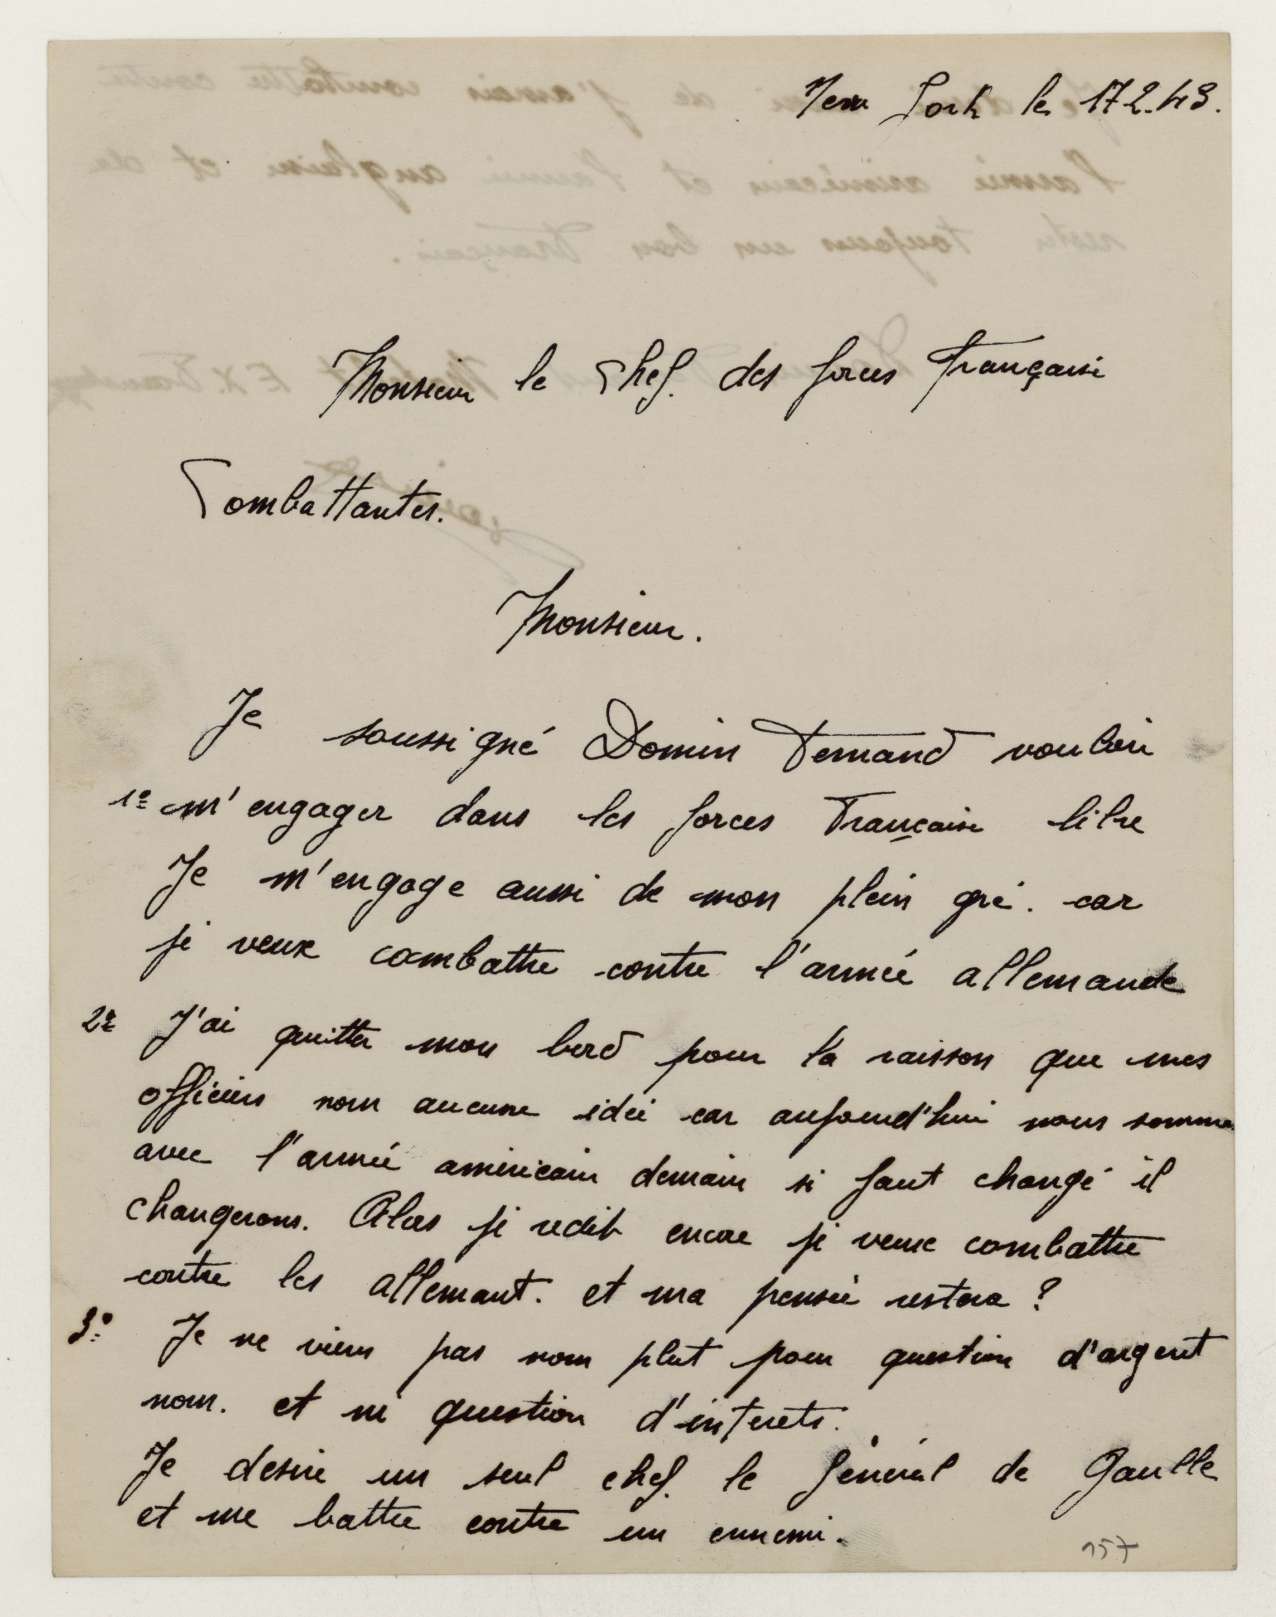 New York le 17.2.43.
Monsieur le Chef. des forces Française
Combattantes.
Monsieur.
Je soussigné Domin Fernand vouloir
1º m'engager dans les forces Française libre
Je m'engage aussi de mon plein gré. car
je veux combattre contre l'armée allemande
2º J'ai quitter mon bord pour la raisson que mes
officiers nom aucune idée car aujourd'hui nous somme
avec l'armée américain demain si faut changé il
changerons. Alors je redit encore je veux combattre
contre les allemant. et ma pensée restera ?
3º Je ne viens pas nom plut pour question d'argent
nom. et ni question d'interets.
Je desire un seul chef. le Général de Gaulle
et me battre contre un ennemi.
157